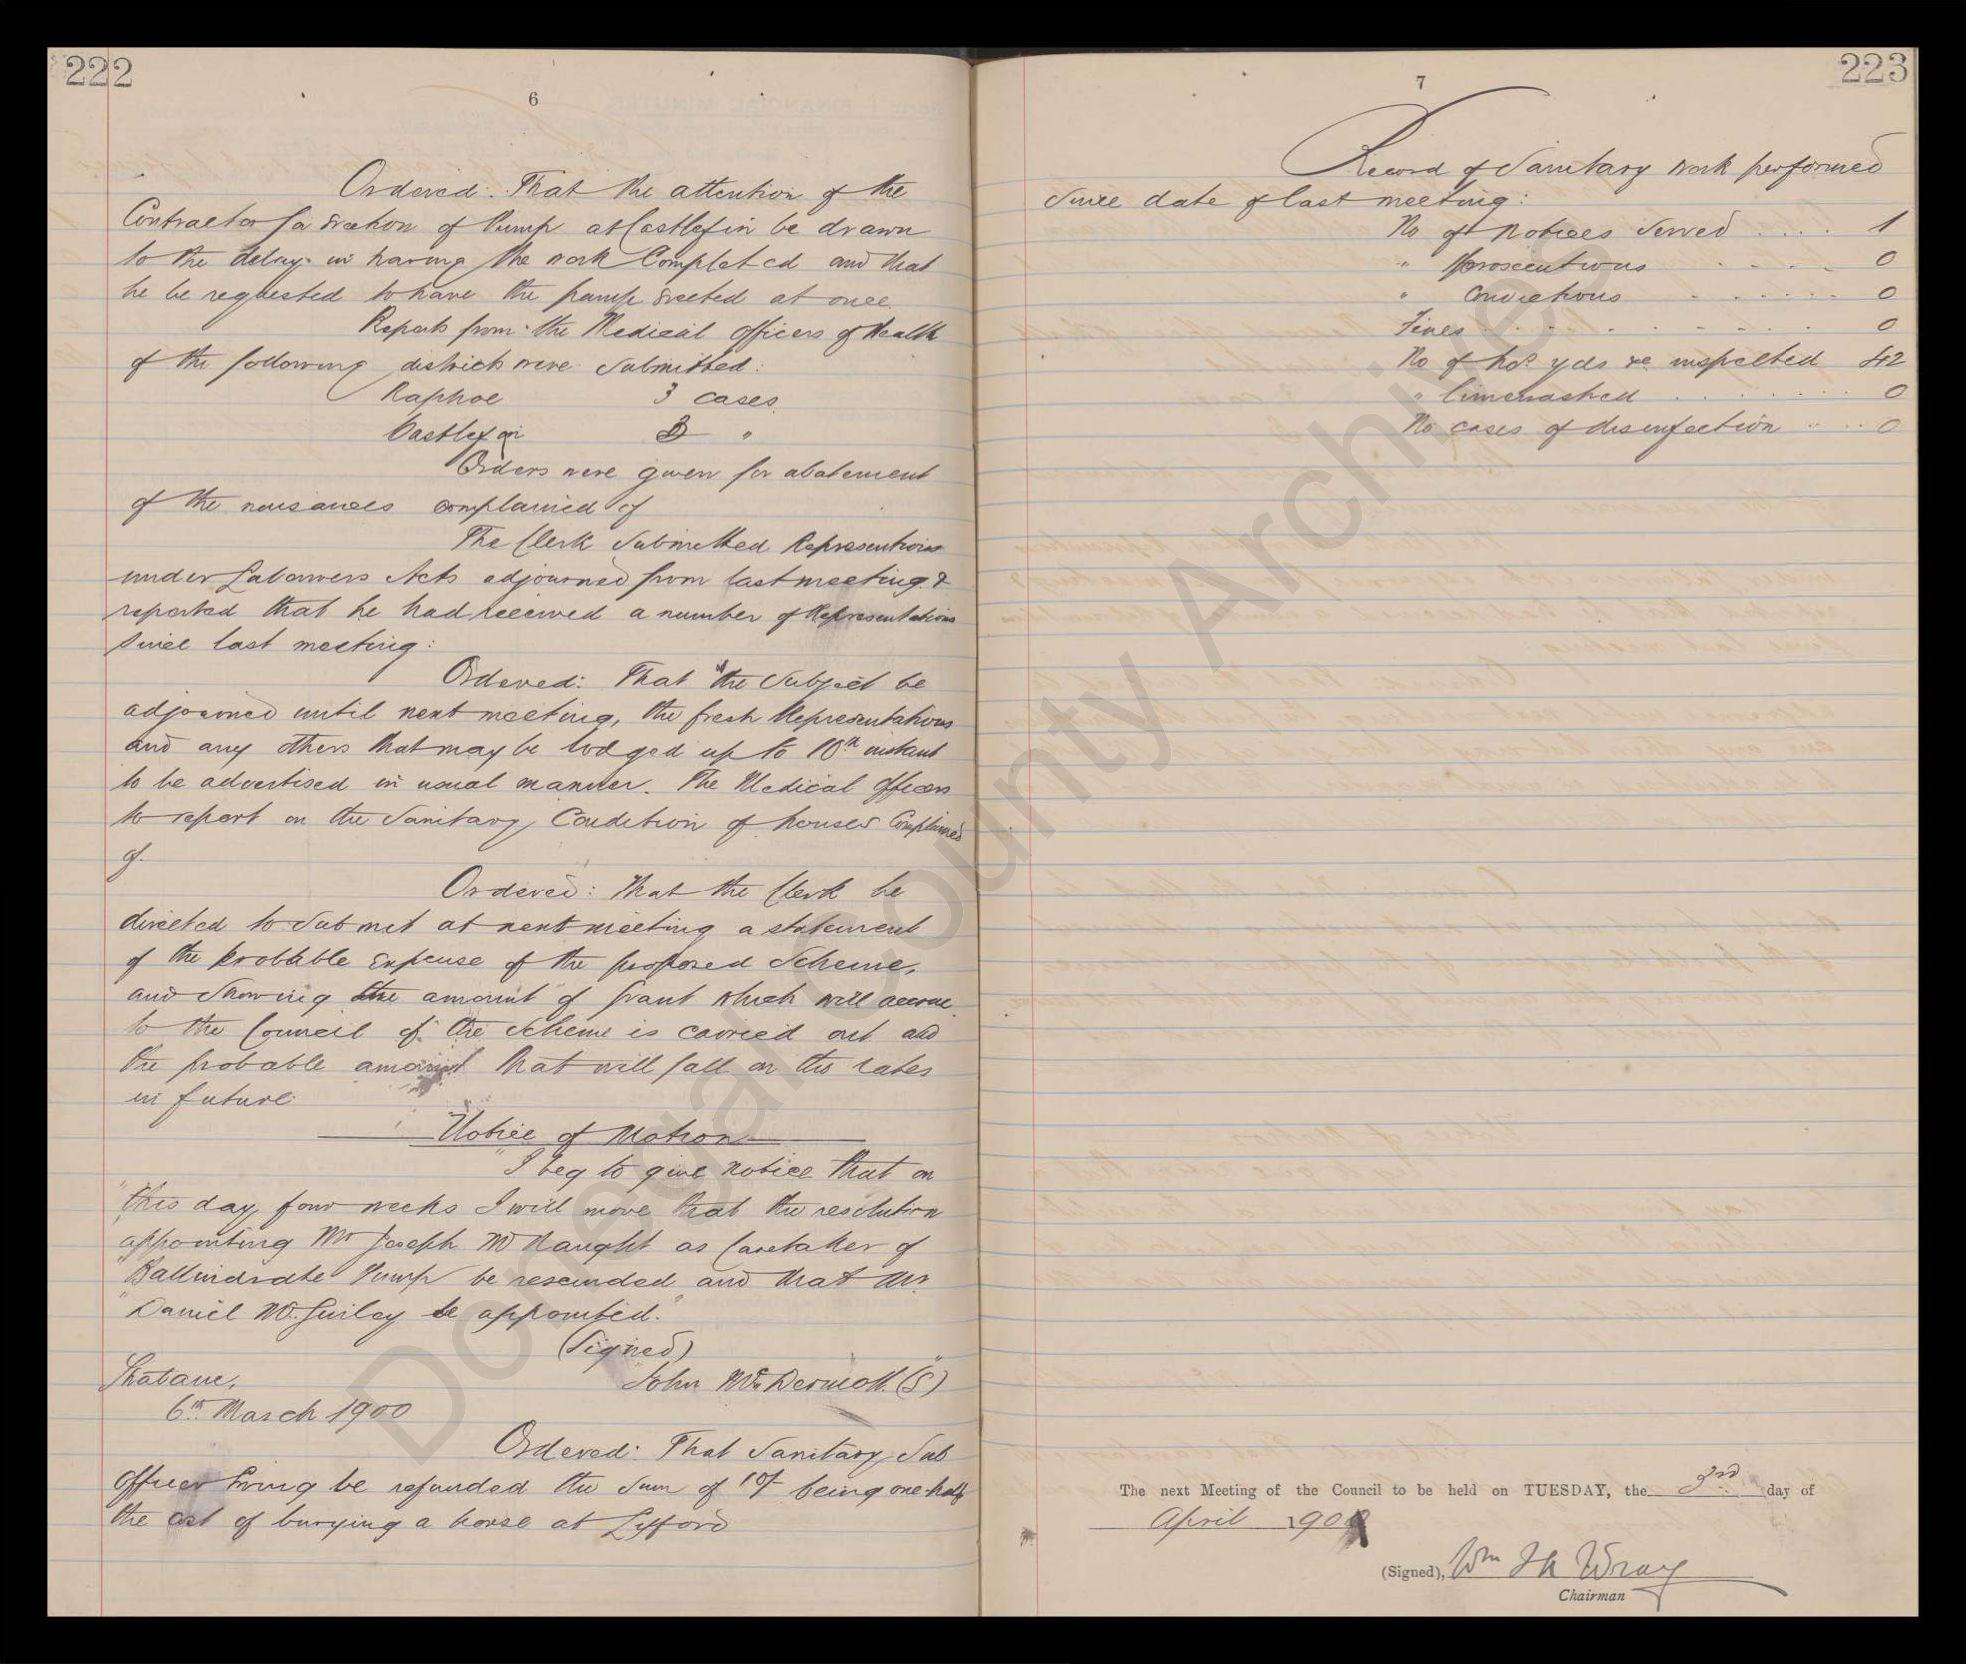 222
6
Ordered: That the attention of the
Contractor for Erection of Pump at Castlefin be drawn
to the delay in having the work Completed and that
he be requested to have the pump Erected at once
Reports from the Medical Officers of Health
of the following districts were Submitted:
Raphoe 3 cases
Castlefin 3 "
Orders were given for abatement
of the nuisances complained of
The Clerk Submitted Representations
under Labourers Acts adjourned from last meeting &
reported that he had received a number of Representations
Since last meeting:
Ordered: That the Subject be
adjourned until next meeting, the fresh Representations
and any others that may be lodged up to 10th instant
to be advertised in usual manner. The Medical Officers
to report on the Sanitary Condition of houses Complained
of.
Ordered: That the Clerk be
directed to Submit at next meeting a statement
of the probable Expense of the proposed Scheme,
and Showing the amount of Grant which will accrue
to the Council if the Scheme is carried out and
the probable amount that will fall on the rates
in future
Notice of Motion
"I beg to give notice that on
"this day four weeks I will move that the resolution
appointing Mr Joseph McNaught as Caretaker of
"Ballindrate Pump be rescinded and that Mr.
"Daniel McGinley be appointed."
(Signed)
Strabane, "John McDermott. (S)"
6th March 1900
Ordered: That Sanitary Sub
Officer be refunded the Sum of 10/- being one half
the cost of burying a horse at Lifford
223
7
Record of Sanitary work performed
Since date of last meeting:
No of notices Served .... 1
" prosecutions .... 0
" Convictions ...... 0
Fines ......... 0
No of hos. yds &c inspected 42
" limewashed ....... 0
No cases of disinfection .... 0
The next Meeting of the Council to be held on TUESDAY, the 3rd day of
April 1900
(Signed), Wm Jn Wray
Chairman
Donegal County Archives